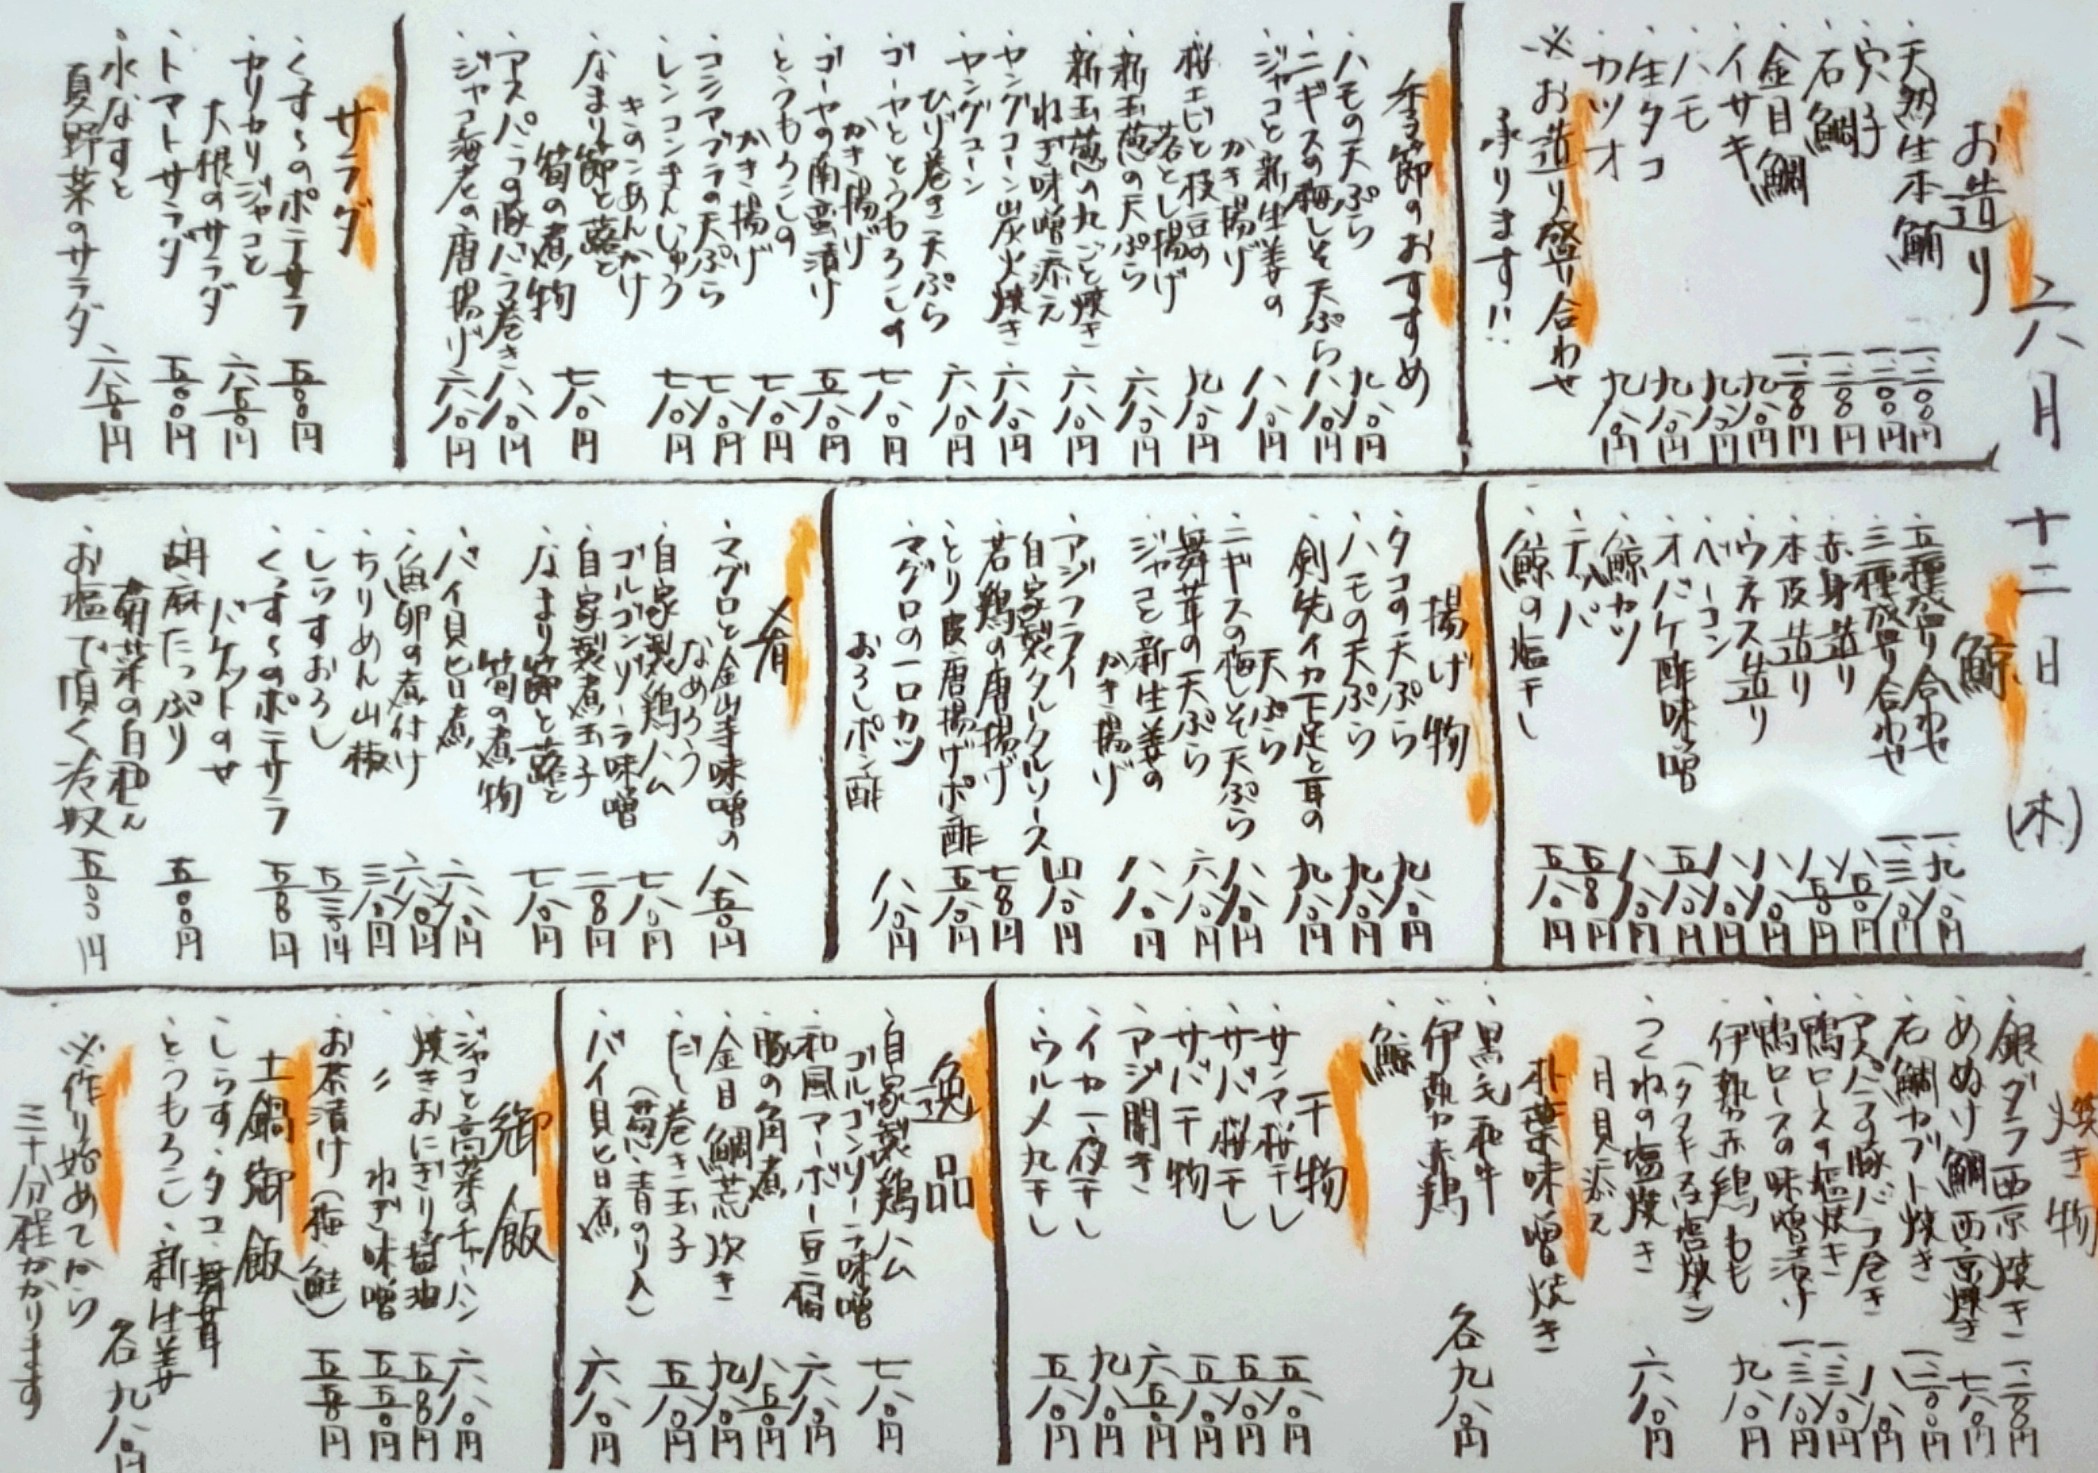 六月 十二日 (木)
お造り
・天然生本鮪 一二〇〇円
・穴子 一二〇〇円
・石鯛 一二〇〇円
・金目鯛 一二〇〇円
・イサキ 九八〇円
・ハモ 九八〇円
・生タコ 九八〇円
・カツオ 九八〇円
※お造り盛り合わせ
承ります!!
季節のおすすめ
・ハモの天ぷら 九八〇円
・ニギスの梅しそ天ぷら 八八〇円
・ジャコと新生姜の
かき揚げ 八八〇円
・桜エビと枝豆の
落とし揚げ 九八〇円
・新玉葱の天ぷら 六八〇円
・新玉葱の丸ごと焼き
ねぎ味噌添え 六八〇円
・ヤングコーン炭火焼き 六八〇円
・ヤングコーン
ひげ巻き天ぷら 六八〇円
・ゴーヤととうもろこしの
かき揚げ 七八〇円
・ゴーヤの南蛮漬け 五八〇円
・とうもろこしの
かき揚げ 七八〇円
・コシアブラの天ぷら 七八〇円
・レンコンまんじゅう
きのこあんかけ 七八〇円
・なまり節と蕗と
筍の煮物 七八〇円
・アスパラの豚バラ巻き 八八〇円
・ジャコ海老の唐揚げ 六八〇円
サラダ
・くずしのポテサラ 五八〇円
・カリカリジャコと
大根のサラダ 六五〇円
・トマトサラダ 五〇〇円
・水なすと
夏野菜のサラダ 六五〇円
鯨
・五種盛り合わせ 一、九八〇円
・三種盛り合わせ 一、三八〇円
・赤身造り 八五〇円
・本皮造り 八五〇円
・ウネス造り 八八〇円
・ベーコン 八八〇円
・オバケ酢味噌 五八〇円
・鯨カツ 八八〇円
・テッパ 五八〇円
・鯨の塩干し 五八〇円
揚げ物
・タコの天ぷら 九八〇円
・ハモの天ぷら 九八〇円
・剣先イカ下足と耳の
天ぷら 九八〇円
・ニギスの梅しそ天ぷら 八八〇円
・舞茸の天ぷら 六八〇円
・ジャコと新生姜の
かき揚げ 八八〇円
・アジフライ
自家製タルタルソース 四八〇円
・若鶏の唐揚げ 七八〇円
・とり皮唐揚げポン酢 五八〇円
・マグロの一口カツ
おろしポン酢 八八〇円
肴
・マグロと金山寺味噌の
なめろう 八五〇円
・自家製鶏ハム
ゴルゴンゾーラ味噌 七八〇円
・自家製煮玉子 二八〇円
・なまり節と蕗と
筍の煮物 七八〇円
・バイ貝旨煮 六八〇円
・魚卵の煮付け 六八〇円
・ちりめん山椒 三八〇円
・しらすおろし 五三〇円
・くずしのポテサラ
バケットのせ 五八〇円
・胡麻たっぷり
菊菜の白和え 五〇〇円
・お塩で頂く冷奴 五〇〇円
焼き物
・銀ダラ西京焼き 一、二八〇円
・めぬけ鯛西京焼き 七八〇円
・石鯛カブト焼き 一、二〇〇円
・アスパラの豚バラ巻き 八八〇円
・鴨ロースの塩焼き 一、三八〇円
・鴨ロースの味噌漬け 一、三八〇円
・伊勢赤鶏もも
(タタキ又は塩焼き) 九八〇円
・つくねの塩焼き
月見添え 六八〇円
朴葉味噌焼き
・黒毛和牛
・伊勢赤鶏
・鯨 各九八〇円
干物
・サンマ桜干し 五八〇円
・サバ桜干し 五八〇円
・サバ干物 五八〇円
・アジ開き 六五〇円
・イカ一夜干し 九八〇円
・ウルメ丸干し 五八〇円
逸品
・自家製鶏ハム
ゴルゴンゾーラ味噌 七八〇円
・和風マーボー豆腐 六八〇円
・豚の角煮 八五〇円
・金目鯛荒炊き 九八〇円
・だし巻き玉子
(葱・青のり入) 五八〇円
・バイ貝旨煮 六八〇円
御飯
・ジャコと高菜のチャーハン 六八〇円
・焼きおにぎり醤油 五八〇円
・〃 ねぎ味噌 五五〇円
・お茶漬け(梅・鮭) 五五〇円
土鍋御飯
・しらす・タコ・舞茸
・とうもろこし・新生姜
各九八〇円
※作り始めてから
三十分程かかります